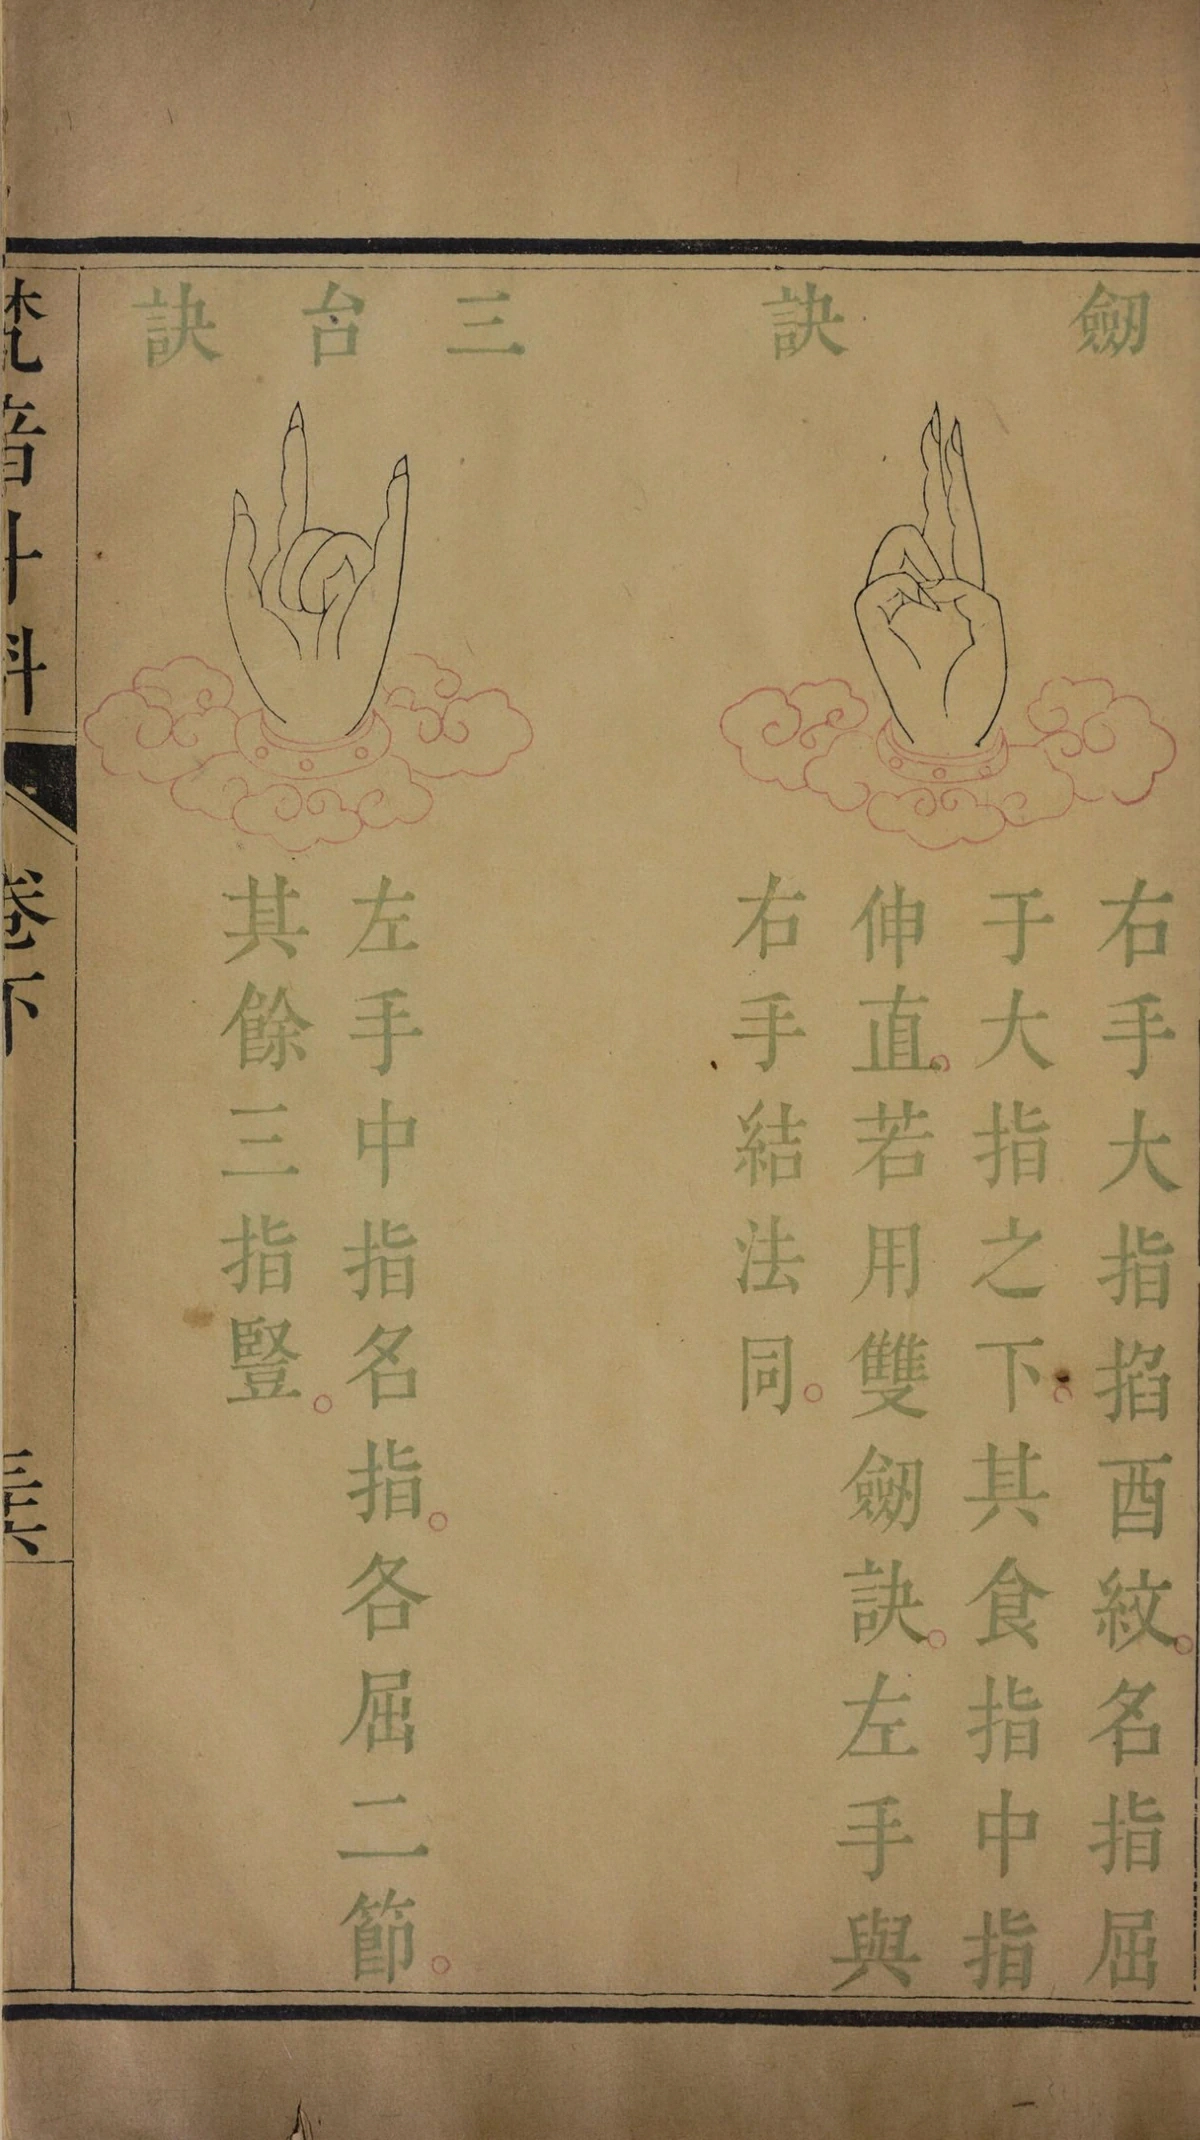 劒訣
右手大指掐酉紋。名指屈
于大指之下。其食指中指
伸直。若用雙劒訣。左手與
右手結法同。
三台訣
左手中指名指。各屈二節。
其餘三指豎。
梵音斗科
卷下
三十六